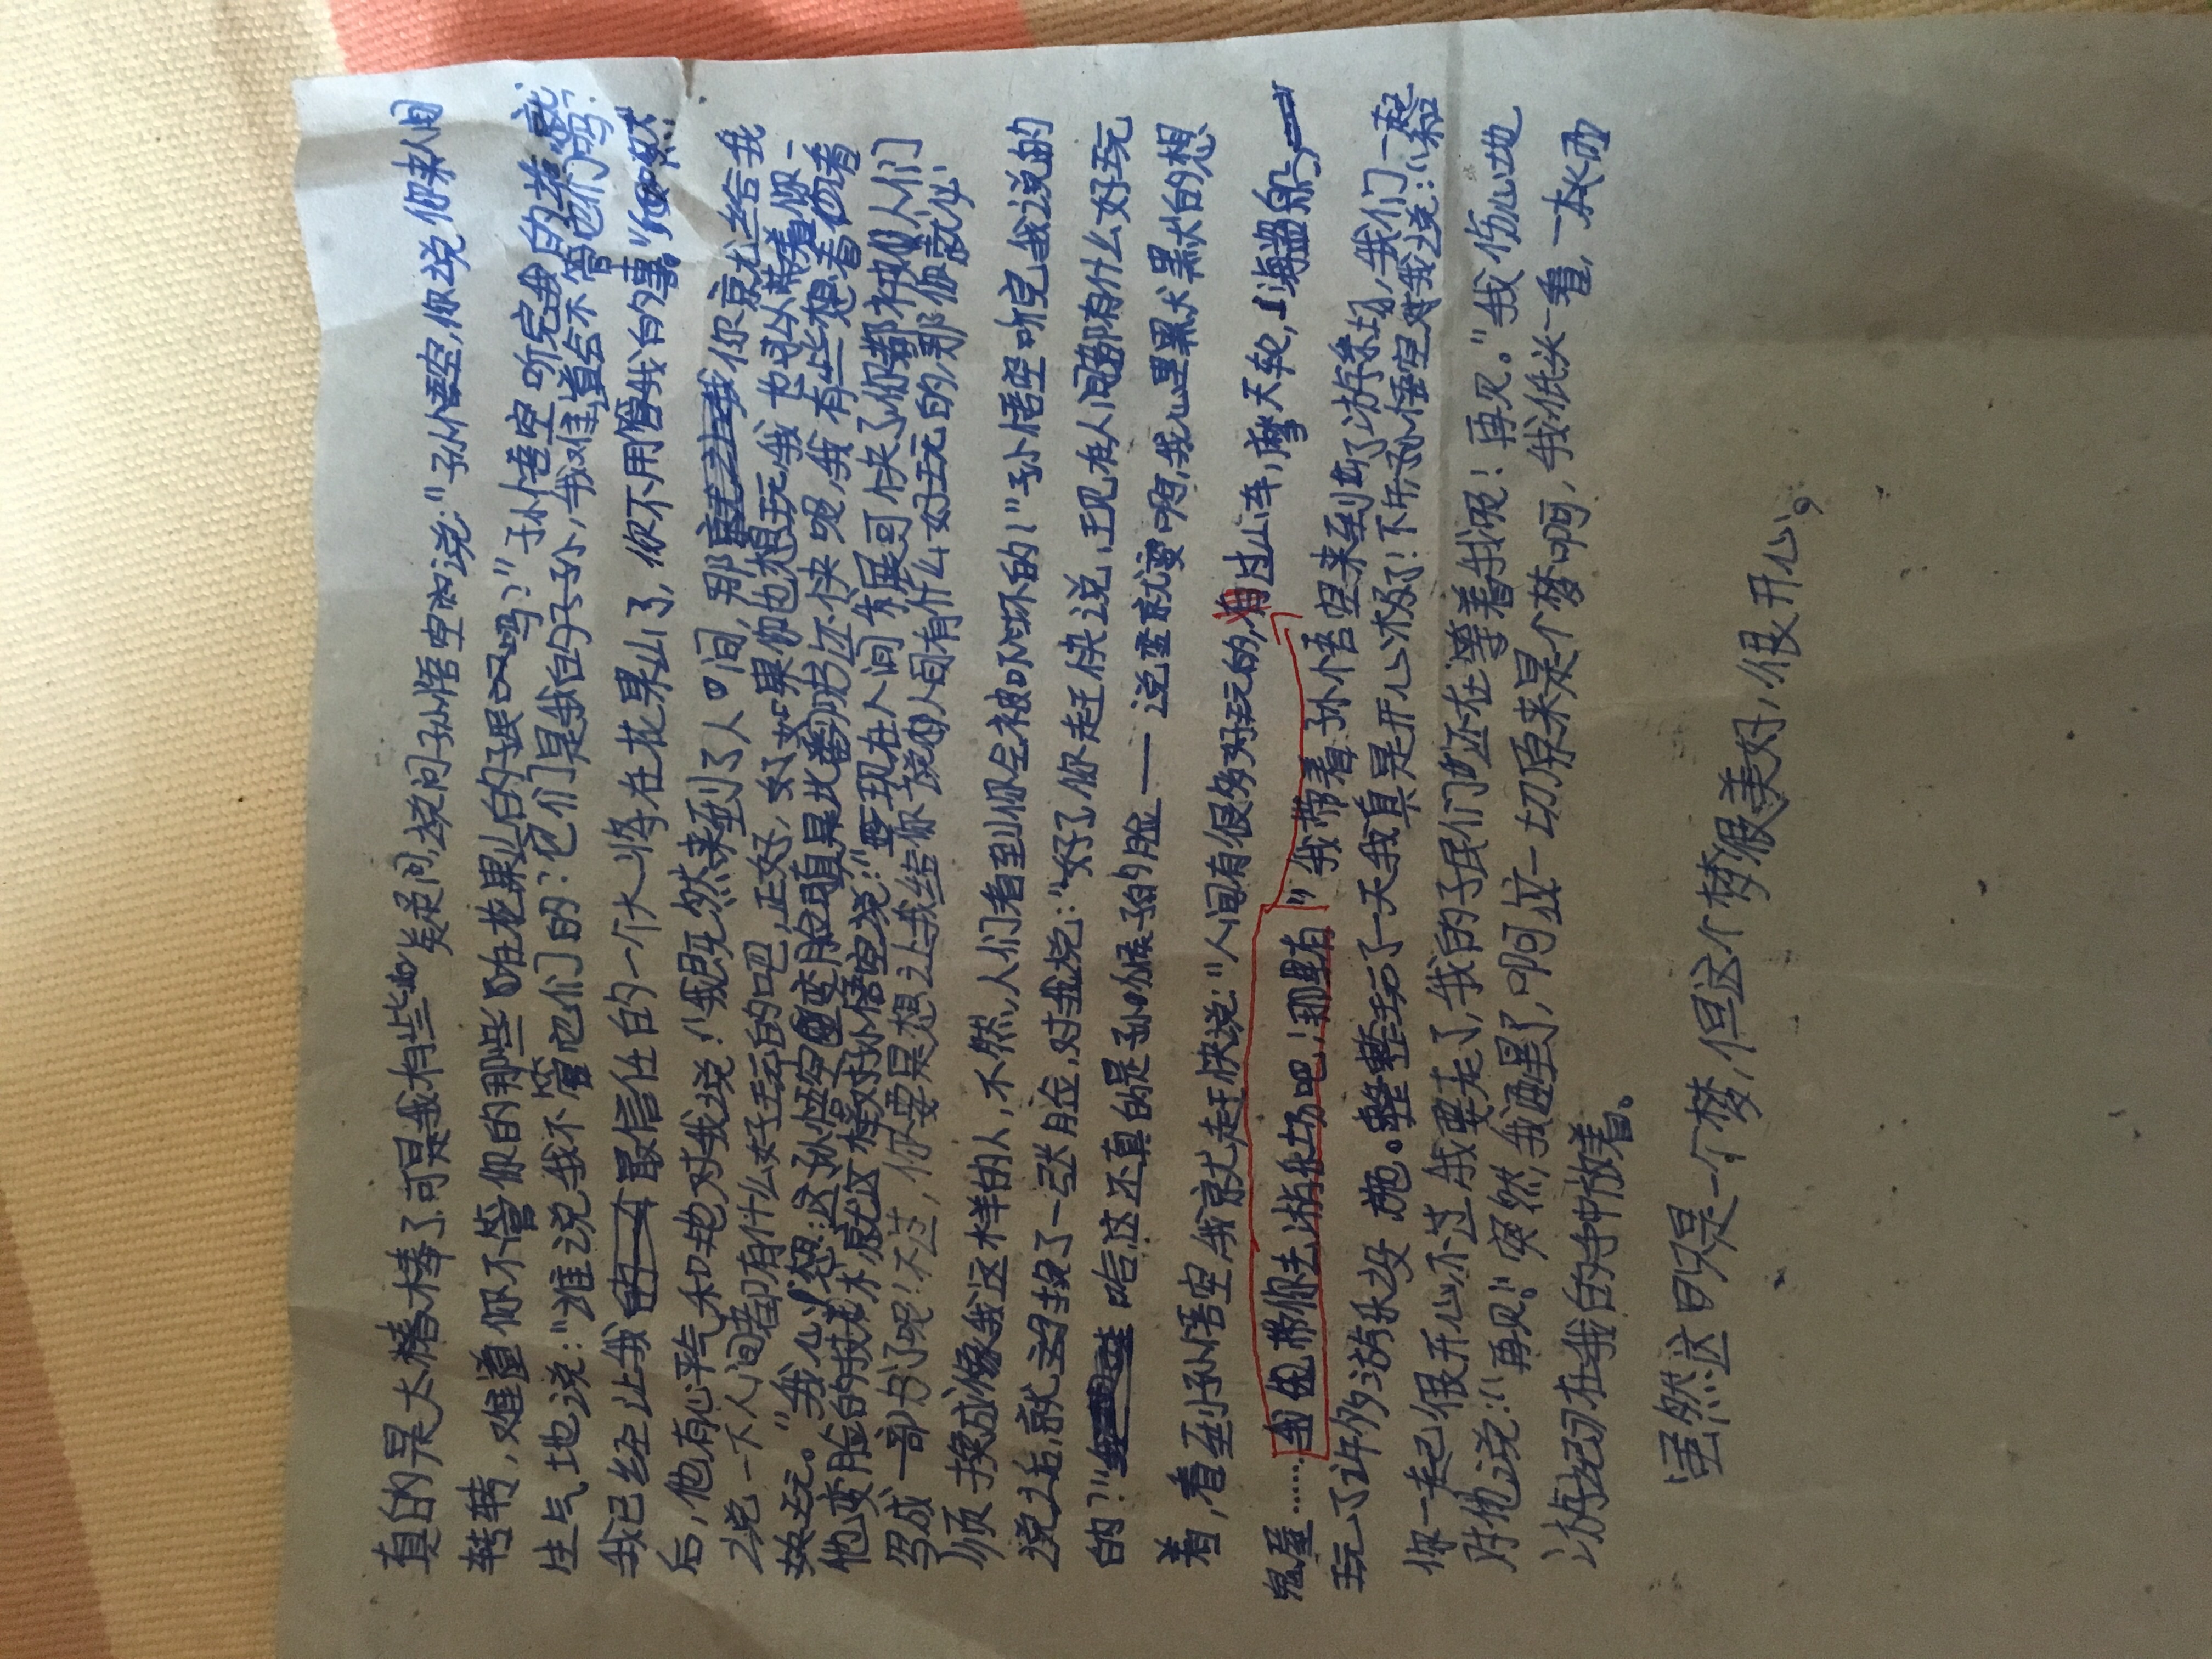 真的是太棒太棒了,可是我有些疑问,我问孙悟空说:"孙悟空,你说你来人间
转转,难道你不管你的那些在花果山的子民吗?"孙悟空听完我的
生气地说:"谁说我不管他们的?它们是我的子子孙,我难道会不管他们吗?
我已经让我最信任的一个大将在花果山了,你不用管我的事。"
后,他有心平气和地对我说:"我既然来到了人间,那你就给我
说一下人间都有什么好玩的吧,正好,如果你也想玩,我也可以带着你一
块玩。"我心想:这孙悟空变脸真是比翻书还快呢,我有些想着
他变脸的技术就这样对孙悟空说:"现在人间发展可快了,你都被人们
写成一部书了呢!不过,你要是想让我给你说人间有什么好玩的,那你就必
须换成像我这样的人,不然,人们看到你会被吓坏的!"孙悟空听完我说的
说之后,就立马换了一张脸,对我说:"好了,你赶快说,现在人间都有什么好玩
的?"哈,这还真的是孙猴子的脸——说变就变啊,我心里默默的想
着,看到孙悟空,我就赶快说:"人间有很多好玩的,有过山车,摩天轮,海盗船,
鬼屋……我带你去游乐场吧!那里有"我带着孙悟空来到了游乐场,我们一起
玩了许多游乐设施。整整玩了一天我真是开心极了!下午,孙悟空对我说:"和
你一起很开心,不过,我要走了,我的子民们还在等着我呢!再见。"我伤心地
对他说:"再见!"突然,我醒了,啊,这一切原来是个梦啊,我低头一看,一本《西
游记》在我的手中放着。
虽然这只是一个梦,但这个梦很美好,很开心。